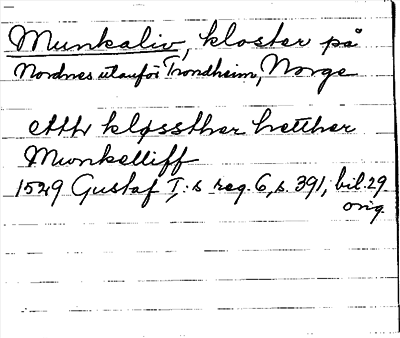 Munkaliv, kloster på
Nordnes utanför Trondheim, Norge
etthr kløssther hetther
Mwnkelliff
1529 Gustaf I:s reg. 6, s. 391, bil. 29
orig.